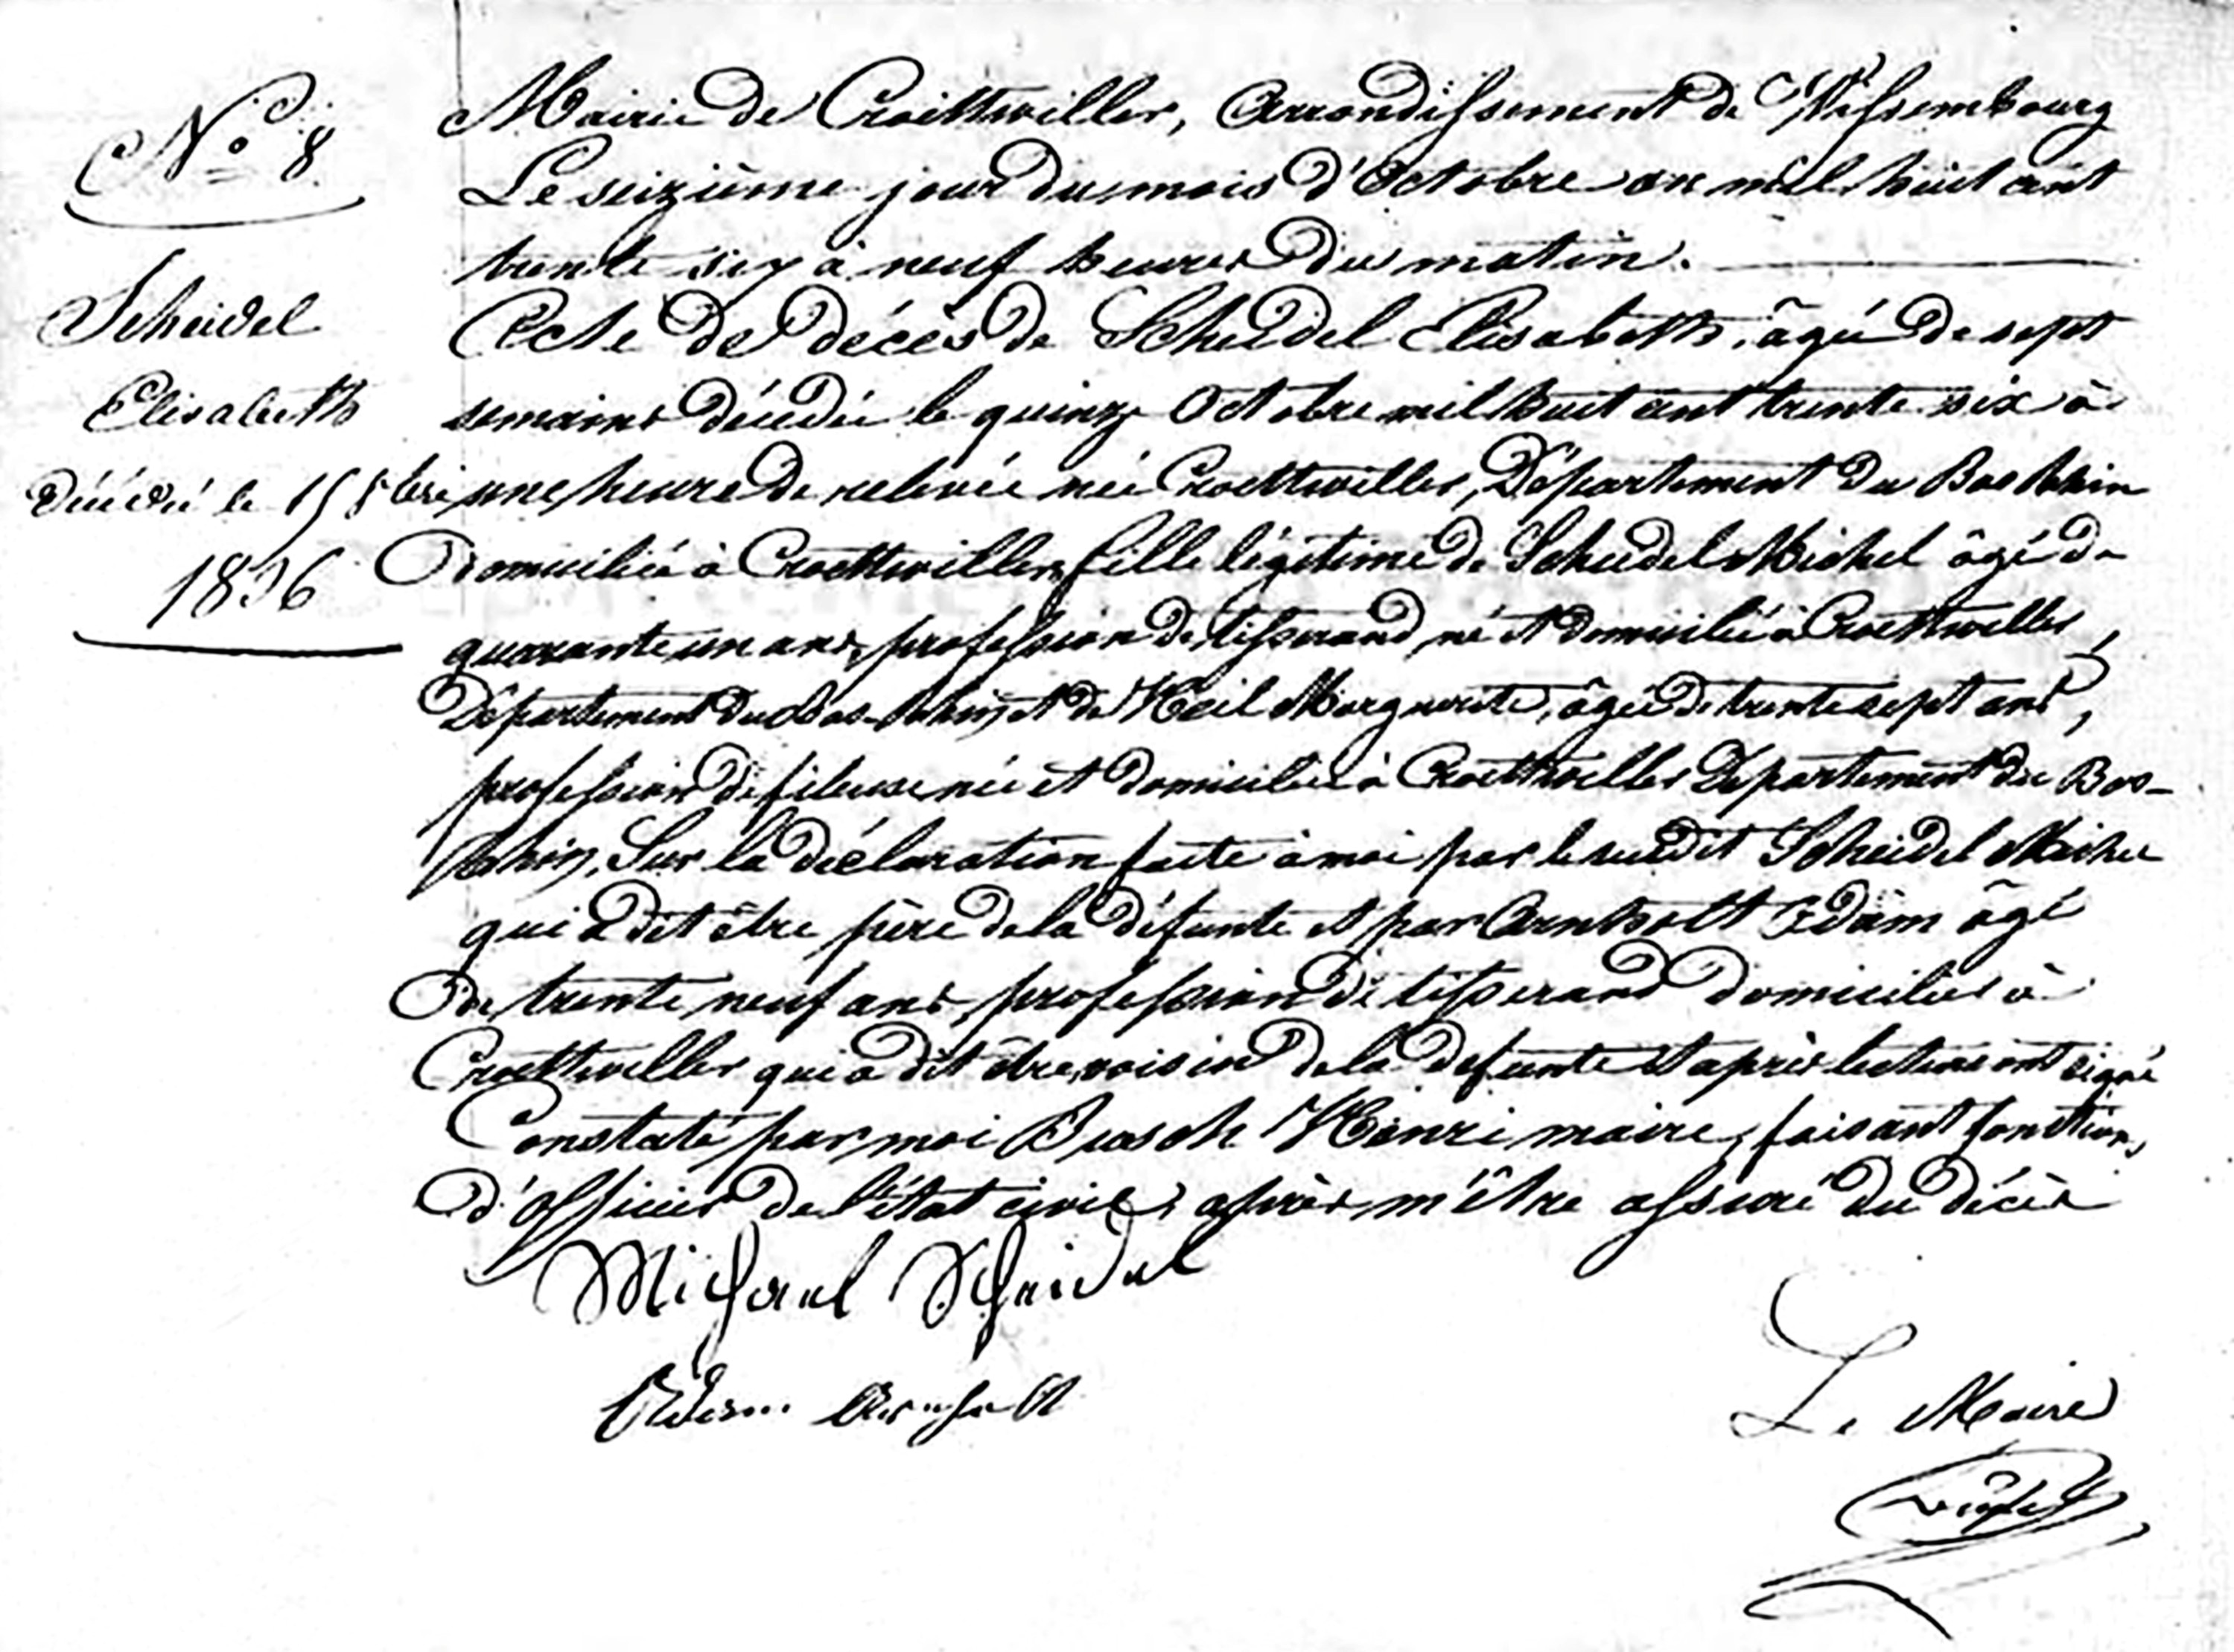 N° 8
Scheidel
Elisabeth
Décédé le 15 8bre
1836
Mairie de Croettwiller, Arrondissement de Wissembourg
Le seizième jour du mois d'Octobre an mil huit cent
trente six à neuf heures du matin.
Acte de décès de Scheidel Elisabeth, âgé de sept
semaines décédée le quinze Octobre mil huit cent trente six à
une heure de relevée née Croettwiller, Département du Bas Rhin
domiciliée à Croettwiller, fille légitime de Scheidel Michel âgé de
quarante un ans, profession de tisserand né et domicilié à Croettwiller,
Département du Bas-Rhin, et de Heil Marguerite, âgée de trente sept ans,
profession de fileuse née et domiciliée à Croettwiller Département du Bas-
Rhin, Sur la déclaration faite à moi par le susdit Scheidel Michel
qui a dit être père de la défunte et par Arnholt Adam âgé
de trente neuf ans, profession de tisserand domicilié à
Croettwiller qui a dit être voisin de la défunte et après lecture ont signé
Constaté par moi Busch Henri maire, faisant fonctions
d'officier de l'état civil, après m'être assuré du décès
Michael Scheidel
Adam Arnholt
Le Maire